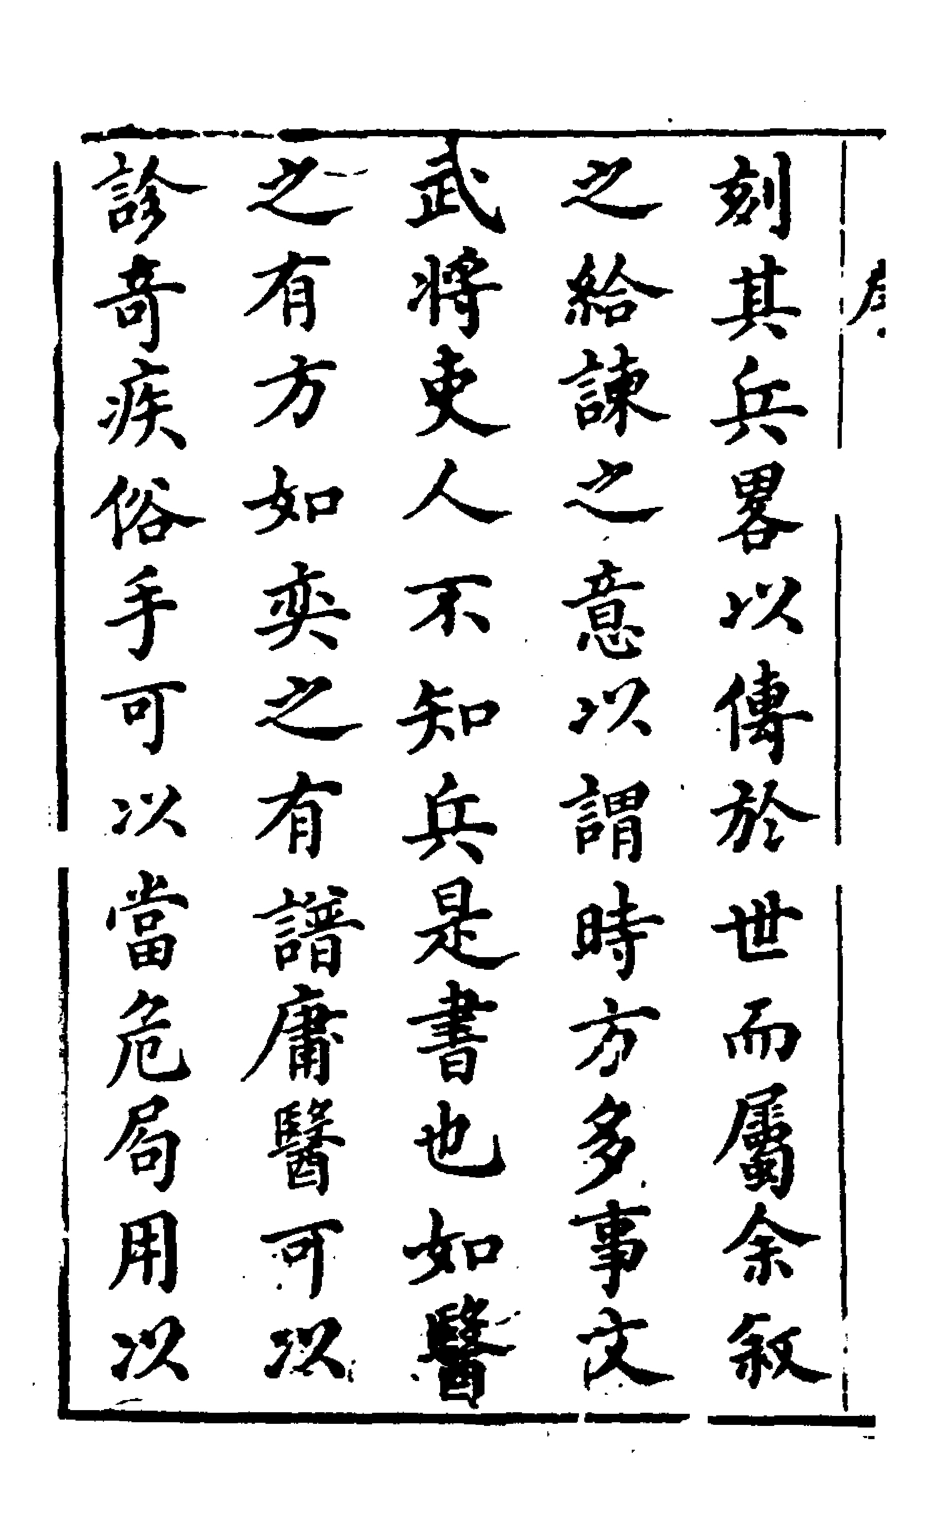 序
刻其兵畧以傳於世而屬余敘
之給諫之意以謂時方多事文
武將吏人不知兵兵是書也如醫
之有方如奕之有譜庸醫可以
診奇疾俗手可以當危局用以